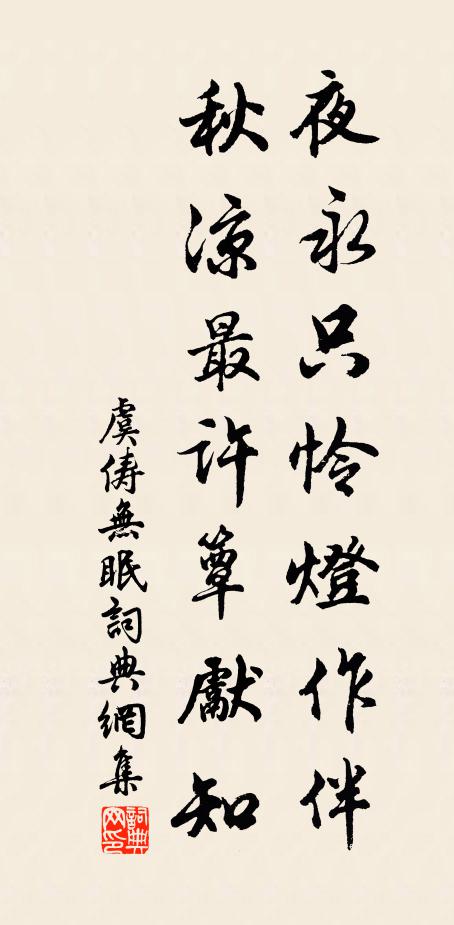 夜永只怜燈作伴
秋涼最許簟獻知
虞儔無眠詞典網集
詞典网印